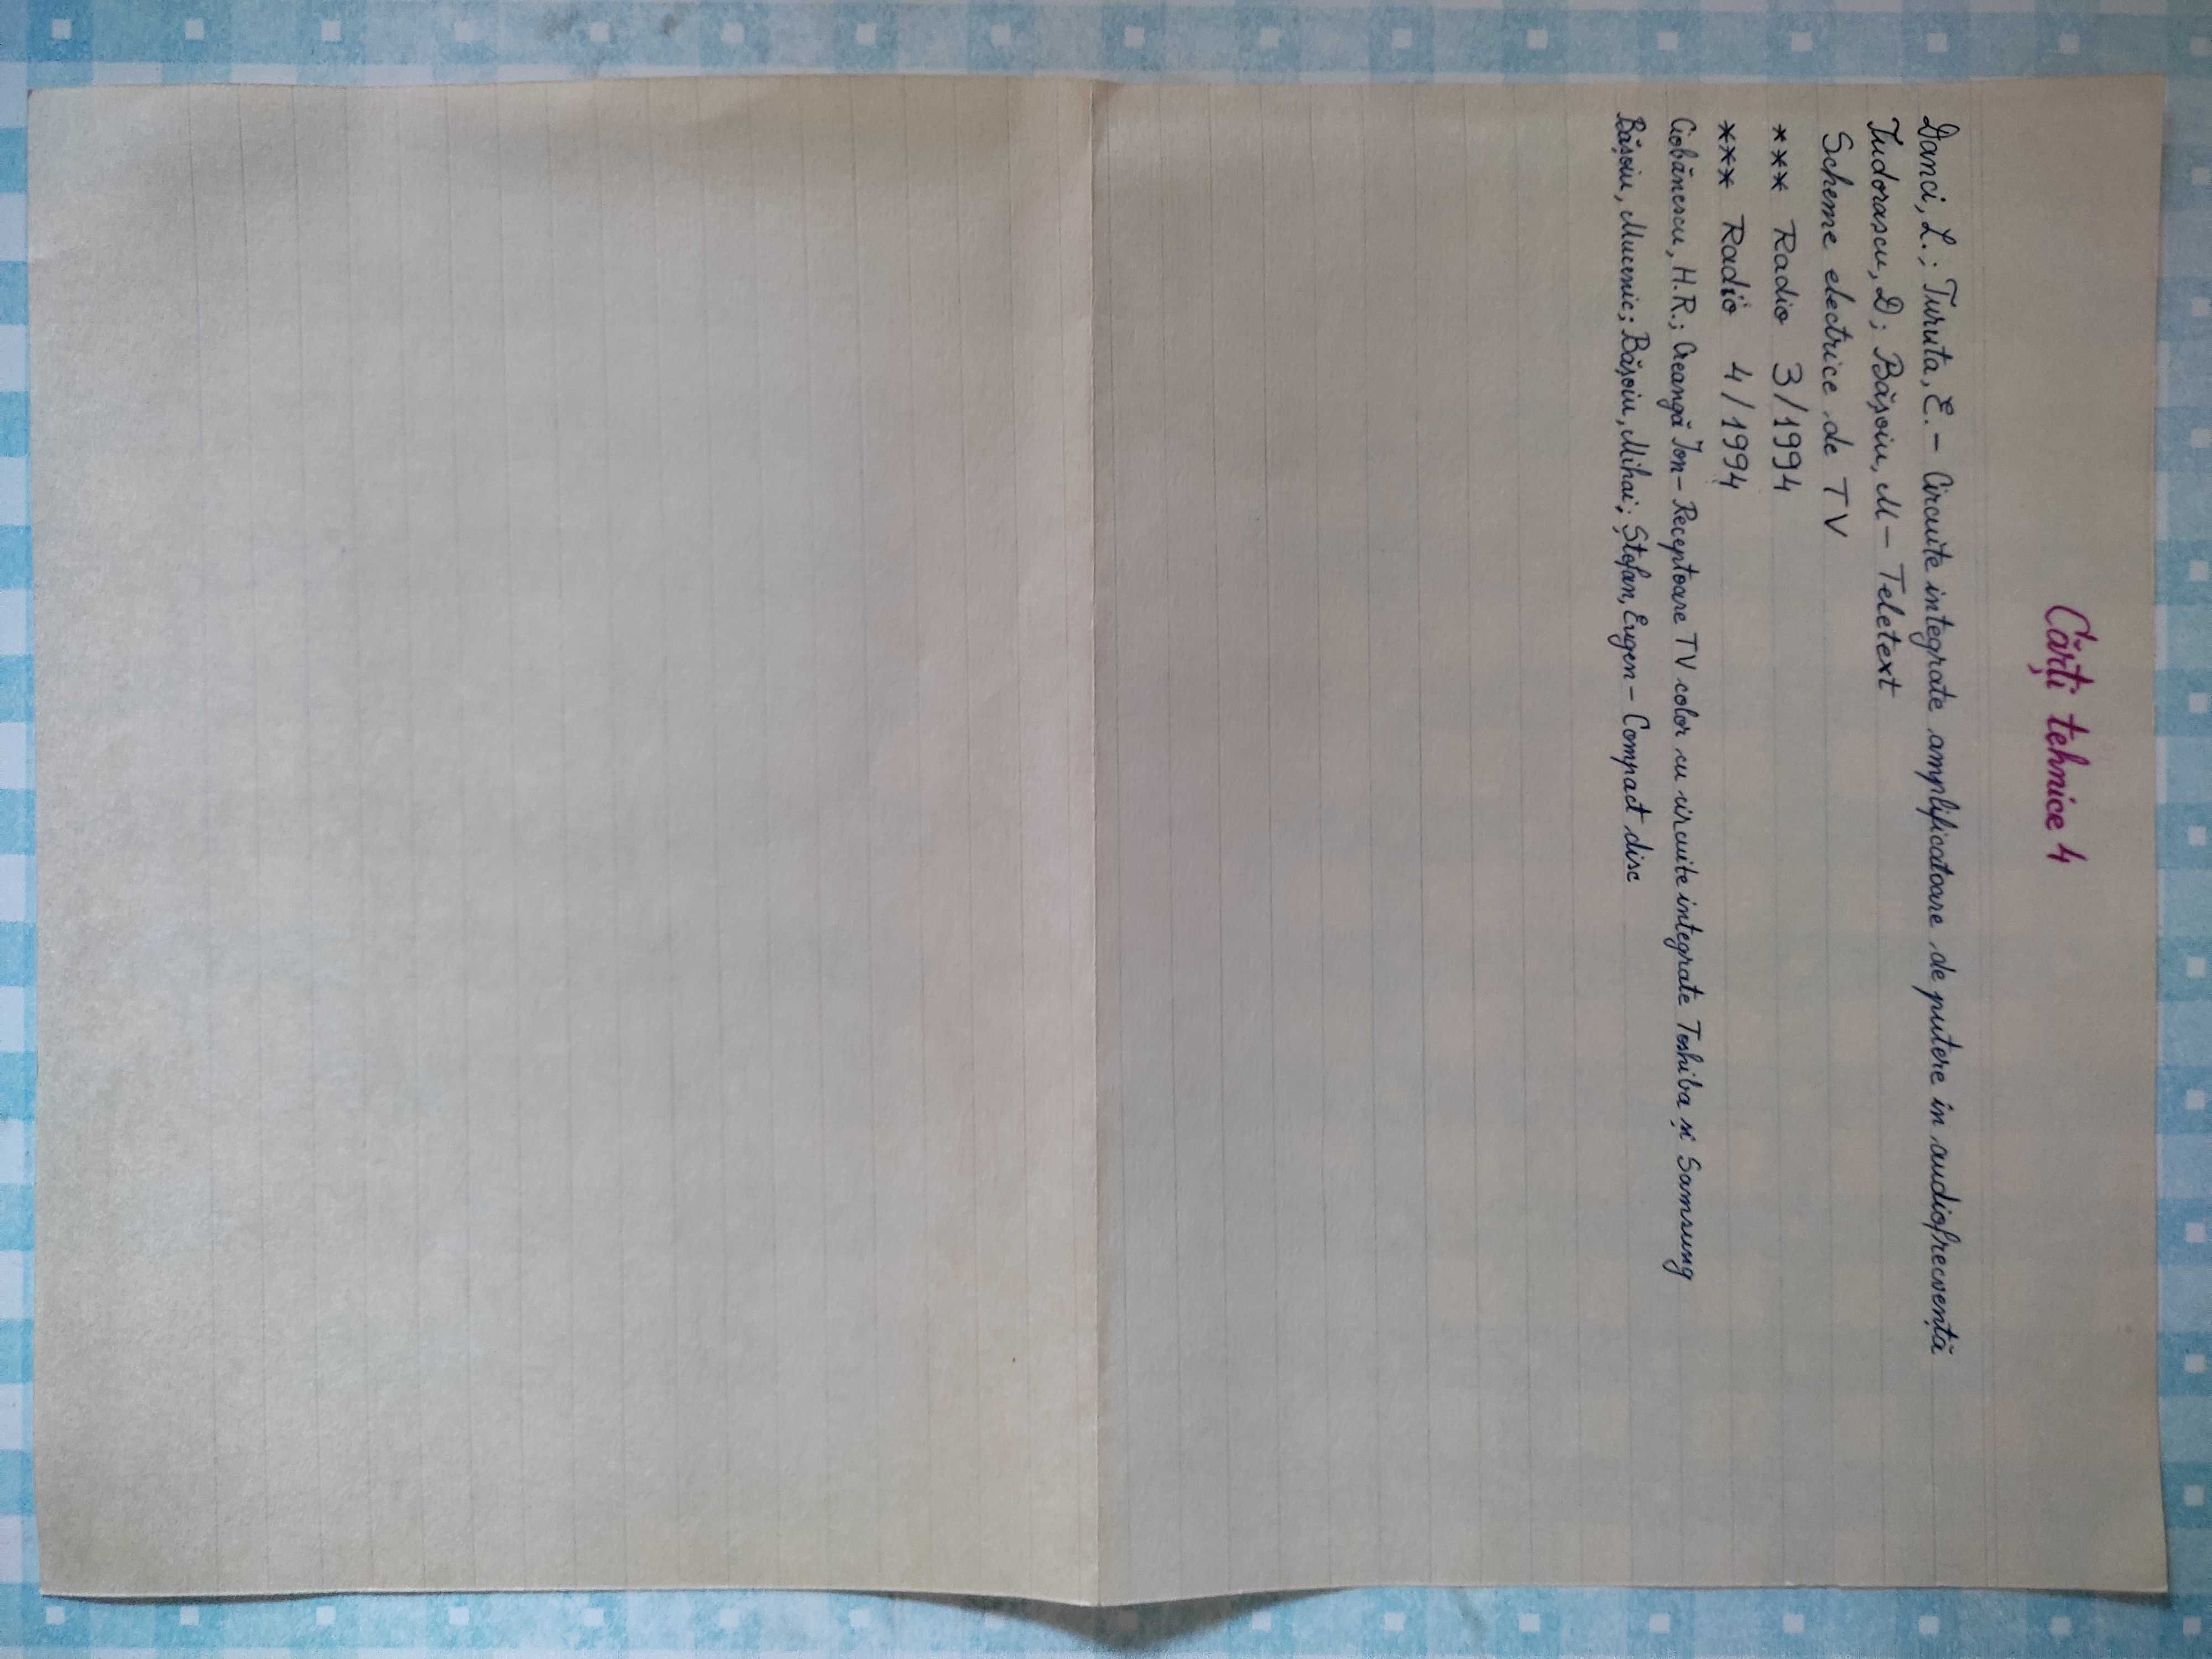 Cărți tehnice 4
Danci, L.; Turuta, E. – Circuite integrate amplificatoare de putere în audiofrecvență
Tudorascu, D; Bășoiu, M – Teletext
Scheme electrice de TV
*** Radio 3/1994
*** Radio 4/1994
Ciobănescu, H.R.; Creangă Ion – Receptoare TV color cu circuite integrate Toshiba și Samsung
Bășoiu, Mucenic; Bășoiu, Mihai; Ștefan, Eugen – Compact disc